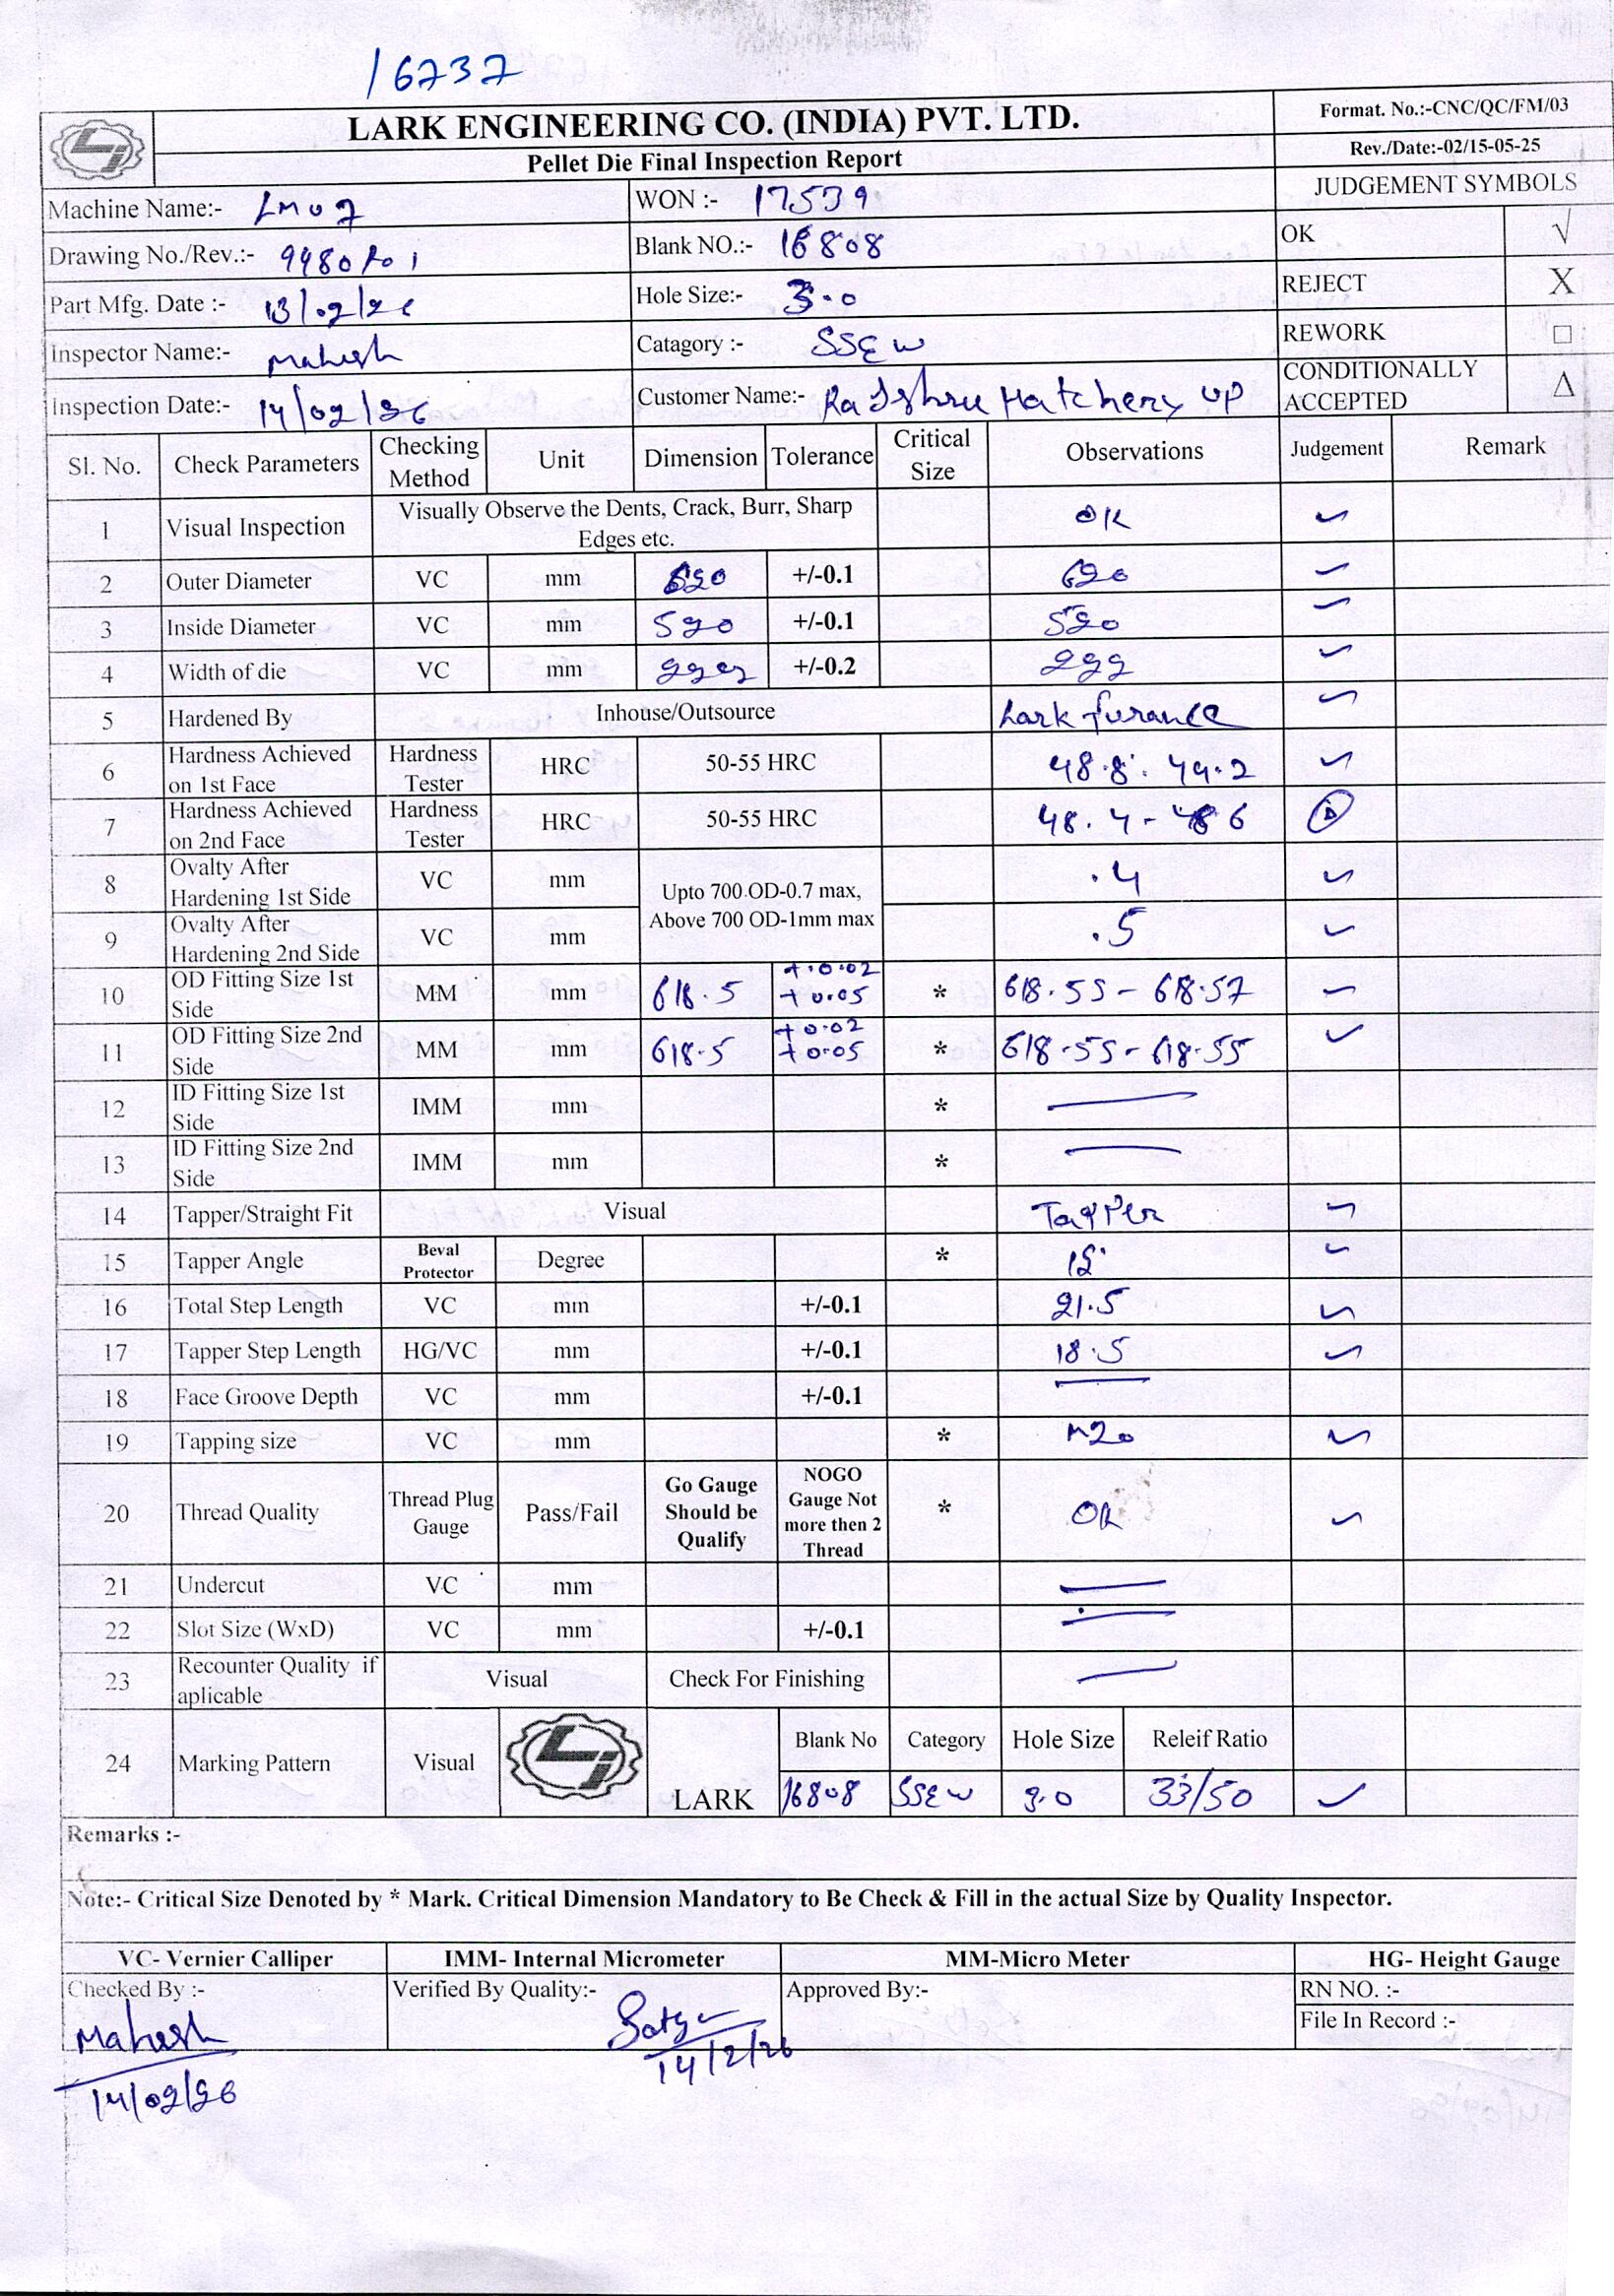 16737
LARK ENGINEERING CO. (INDIA) PVT. LTD.
Pellet Die Final Inspection Report
Format. No.:-CNC/QC/FM/03
Rev./Date:-02/15-05-25
JUDGEMENT SYMBOLS
Machine Name:- LM07 WON :- 17539
OK √
Drawing No./Rev.:- 9980R01 Blank NO.:- 16808
REJECT X
Part Mfg. Date :- 13/02/26 Hole Size:- 3.0
REWORK □
Inspector Name:- Mahesh Catagory :- SSEW
CONDITIONALLY ACCEPTED Δ
Inspection Date:- 14/02/26 Customer Name:- Hatchery UP
Sl. No. Check Parameters Checking Method Unit Dimension Tolerance Critical Size Observations Judgement Remark
1 Visual Inspection Visually Observe the Dents, Crack, Burr, Sharp Edges etc. OK ✓
2 Outer Diameter VC mm 620 +/-0.1 620 ✓
3 Inside Diameter VC mm 520 +/-0.1 520 ✓
4 Width of die VC mm +/-0.2 222 ✓
5 Hardened By Inhouse/Outsource Lark furance ✓
6 Hardness Achieved on 1st Face Hardness Tester HRC 50-55 HRC 48.8. 49.2 ✓
7 Hardness Achieved on 2nd Face Hardness Tester HRC 50-55 HRC 48.4 - 48 6 Δ
8 Ovalty After Hardening 1st Side VC mm Upto 700 OD-0.7 max, Above 700 OD-1mm max .4 ✓
9 Ovalty After Hardening 2nd Side VC mm .5 ✓
10 OD Fitting Size 1st Side MM mm 618.5 +0.02 +0.05 * 618.55 - 618.57 ✓
11 OD Fitting Size 2nd Side MM mm 618.5 +0.02 +0.05 * 618.55 - 618.55 ✓
12 ID Fitting Size 1st Side IMM mm * —
13 ID Fitting Size 2nd Side IMM mm * —
14 Tapper/Straight Fit Visual Tapper ✓
15 Tapper Angle Beval Protector Degree * 15° ✓
16 Total Step Length VC mm +/-0.1 21.5 ✓
17 Tapper Step Length HG/VC mm +/-0.1 18.5 ✓
18 Face Groove Depth VC mm +/-0.1 —
19 Tapping size VC mm * M20 ✓
20 Thread Quality Thread Plug Gauge Pass/Fail Go Gauge Should be Qualify NOGO Gauge Not more then 2 Thread * OK ✓
21 Undercut VC mm —
22 Slot Size (WxD) VC mm +/-0.1 —
23 Recounter Quality if aplicable Visual Check For Finishing —
24 Marking Pattern Visual LARK Blank No Category Hole Size Releif Ratio
16808 SSEW 3.0 33/50 ✓
Remarks :-
Note:- Critical Size Denoted by * Mark. Critical Dimension Mandatory to Be Check & Fill in the actual Size by Quality Inspector.
VC- Vernier Calliper IMM- Internal Micrometer MM-Micro Meter HG- Height Gauge
Checked By :- Verified By Quality:- Approved By:- RN NO. :-
File In Record :-
Mahesh
14/02/26
14/2/26